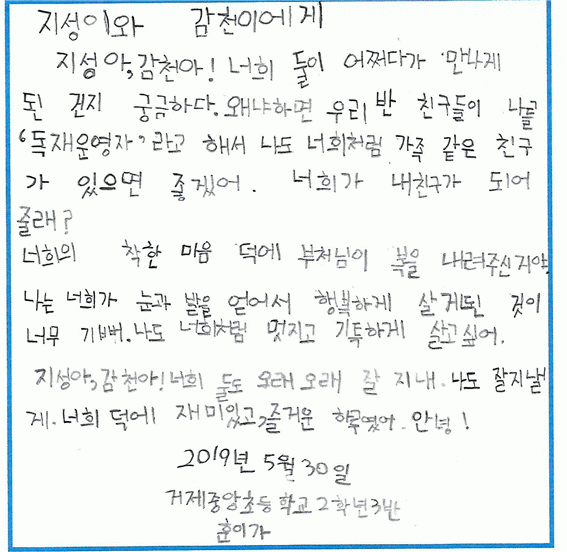 지성이와 감천이에게
지성아, 감천아! 너희 둘이 어쩌다가 만나게
된 건지 궁금하다. 왜냐하면 우리 반 친구들이 나를
'독재운영자'라고 해서 나도 너희처럼 가족 같은 친구
가 있으면 좋겠어. 너희가 내친구가 되어
줄래?
너희의 착한 마음 덕에 부처님이 복을 내려주신거야.
나는 너희가 눈과 발을 얻어서 행복하게 살게된 것이
너무 기뻐. 나도 너희처럼 멋지고 기특하게 살고싶어.
지성아, 감천아! 너희 둘도 오래오래 잘 지내. 나도 잘지낼
게. 너희 덕에 재미있고, 즐거운 하루였아. 안녕!
2019년 5월 30일
거제중앙초등학교 2학년3반
훈이가